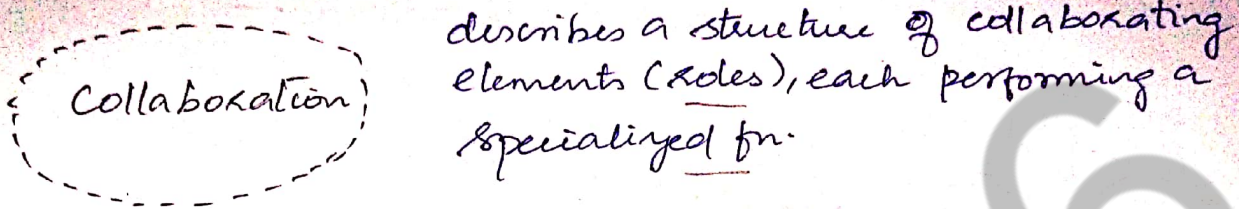 Collaboration
describes a structure of collaborating
elements (roles), each performing a
specialized fn.